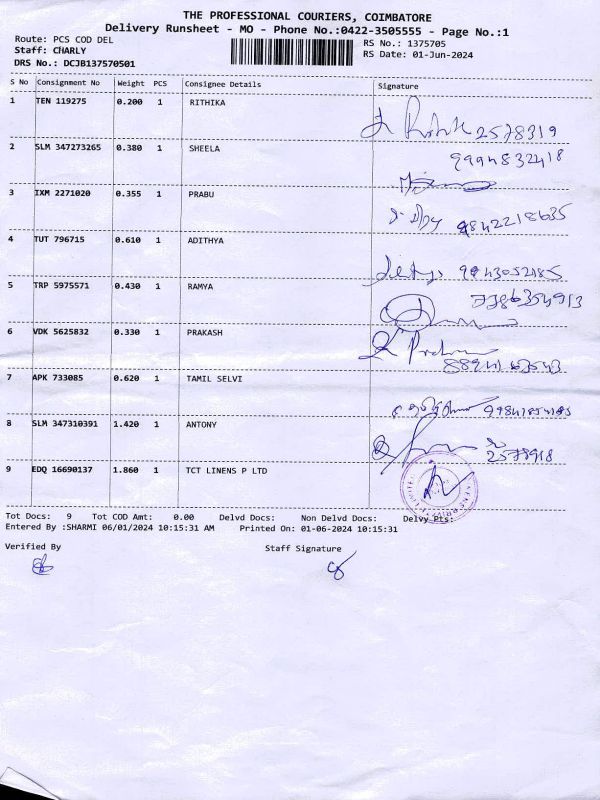 THE PROFESSIONAL COURIERS, COIMBATORE
Delivery Runsheet - MO - Phone No.:0422-3505555 - Page No.:1
Route: PCS COD DEL
Staff: CHARLY
DRS No.: DCJB137570501
RS No.: 1375705
RS Date: 01-Jun-2024
S No Consignment No Weight PCS Consignee Details Signature
1 TEN 119275 0.200 1 RITHIKA 2578319
2 SLM 347273265 0.380 1 SHEELA 9994832418
3 IXM 2271020 0.355 1 PRABU 9842218635
4 TUT 796715 0.610 1 ADITHYA 9943052185
5 TRP 5975571 0.430 1 RAMYA
6 VDK 5625832 0.330 1 PRAKASH
7 APK 733085 0.620 1 TAMIL SELVI
8 SLM 347310391 1.420 1 ANTONY 2578918
9 EDQ 16690137 1.860 1 TCT LINENS P LTD
Tot Docs: 9 Tot COD Amt: 0.00 Delvd Docs: Non Delvd Docs: Delvy Pts:
Entered By :SHARMI 06/01/2024 10:15:31 AM Printed On: 01-06-2024 10:15:31
Verified By
Staff Signature